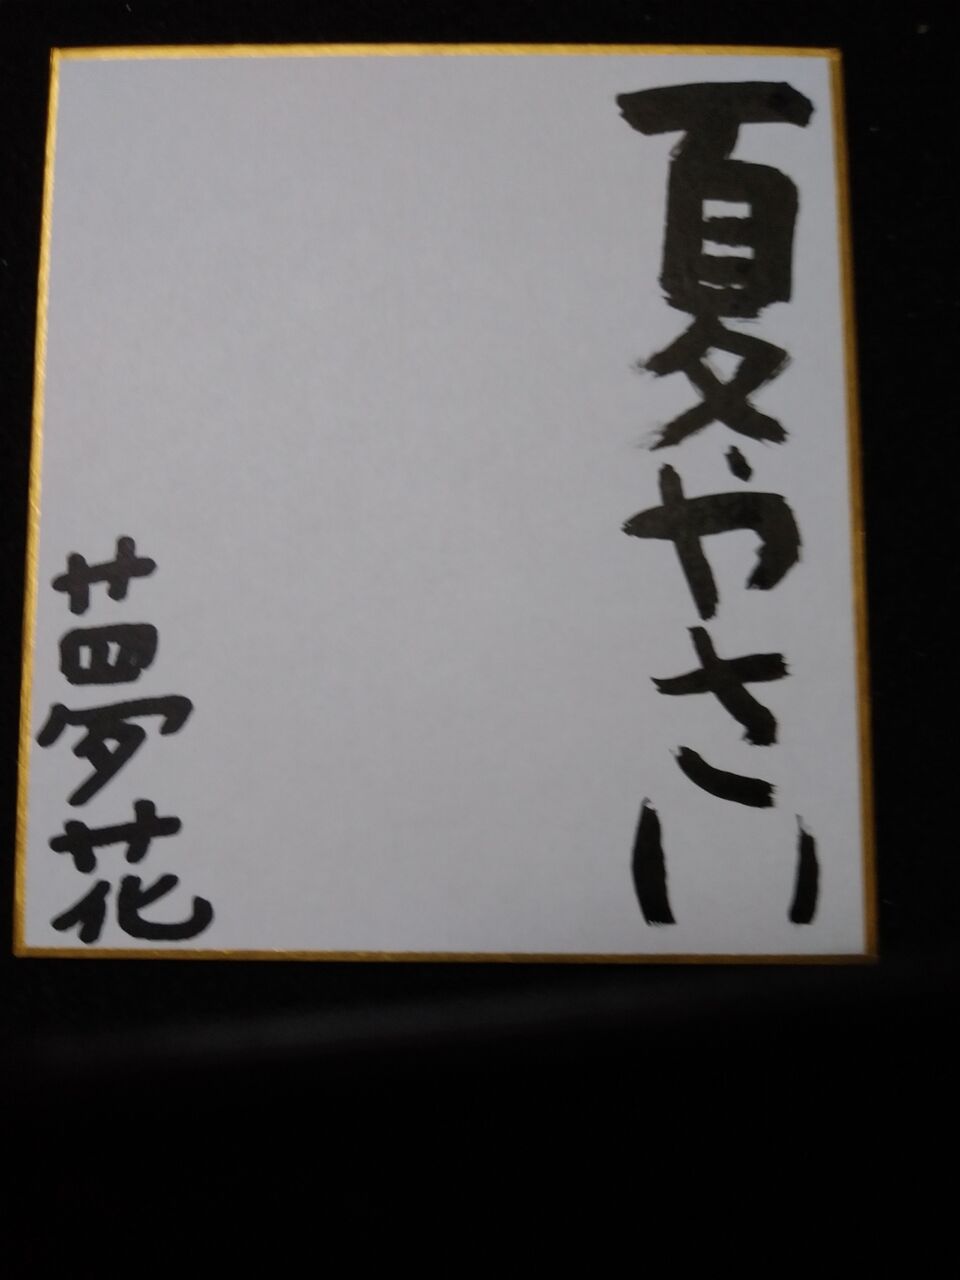 夏やさい
夢花